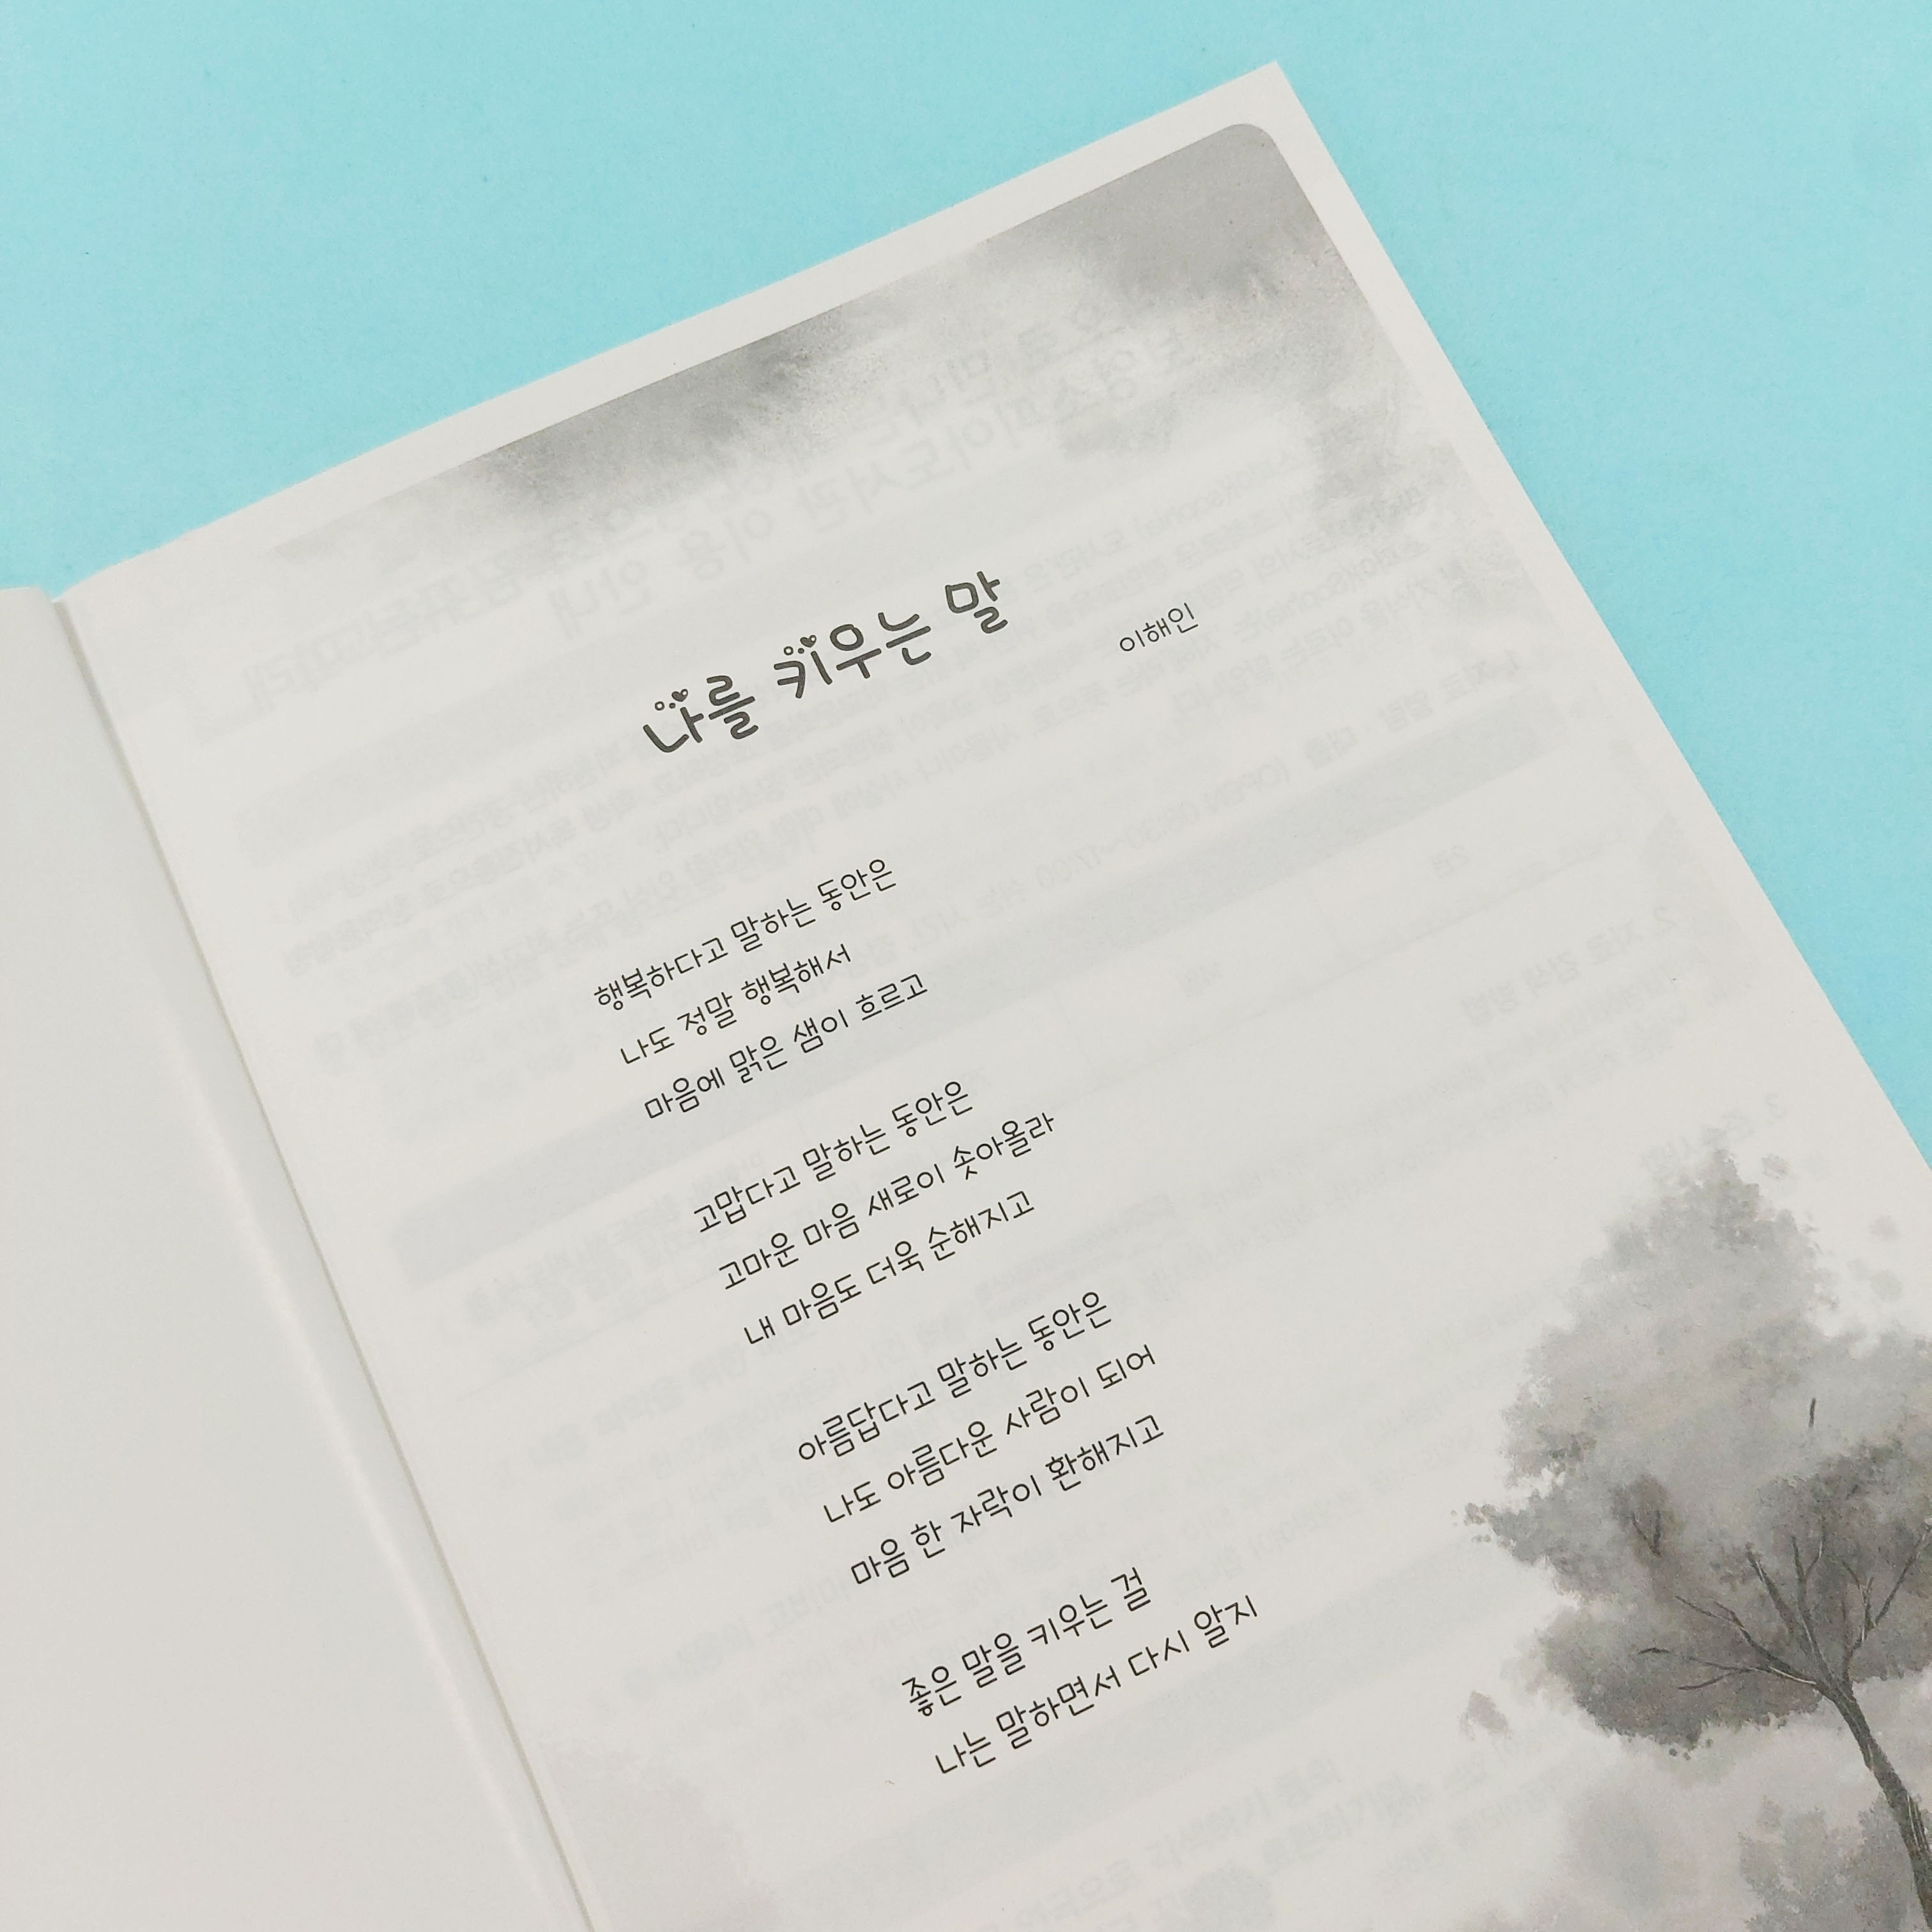 나를 키우는 말
이해인
행복하다고 말하는 동안은
나도 정말 행복해서
마음에 맑은 샘이 흐르고
고맙다고 말하는 동안은
고마운 마음 새로이 솟아올라
내 마음도 더욱 순해지고
아름답다고 말하는 동안은
나도 아름다운 사람이 되어
마음 한 자락이 환해지고
좋은 말을 키우는 걸
나는 말하면서 다시 알지